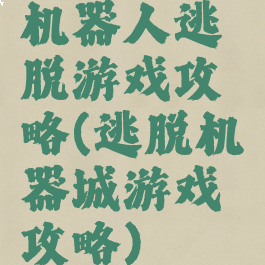 机器人逃
脱游戏攻
略(逃脱机
器城游戏
攻略)